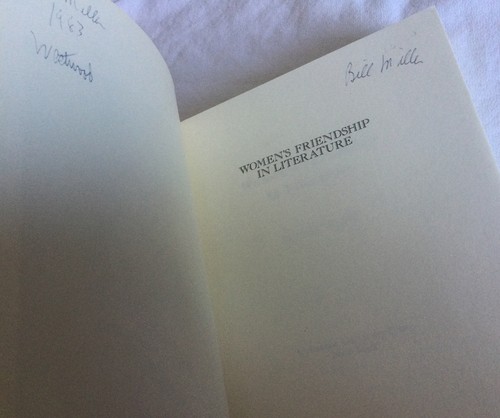 Miller
1983
Westwood
Bill Miller
WOMEN'S FRIENDSHIP
IN LITERATURE